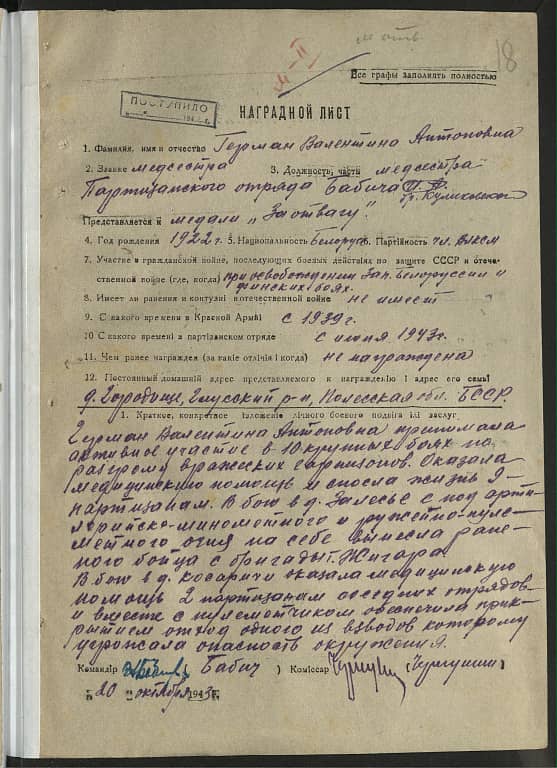 18
Все графы заполнять полностью
ПОСТУПИЛО
НАГРАДНОЙ ЛИСТ
1. Фамилия, имя и отчество Герман Валентина Антоновна
2. Звание медсестра 3. Должность, часть медсестра
Партизанского отряда Бабича
Представляется к медали „За отвагу".
4. Год рождения 1922 г. 5. Национальность Белорус 6. Партийность чл. влксм
7. Участие в гражданской войне, последующих боевых действіях по защите СССР и отече-
ственной войне (где, когда) при освобождении Зап. Белоруссии и
финских боях.
8. Имеет ли ранения и контузіи в отечественной войне не имеет
9. С какого времени в Красной Армиі с 1939 г.
10 С какого времені в партизанском отряде с июня 1943 г.
11. Чем ранее награжден (за какіе отлічія і когда) не награждена
12. Постоянный домашній адрес представляемого к награжденію і адрес его семьі
д. Городище, Глусский р-н, Полесская обл. БССР.
1. Краткое, конкретное ізложеніе лічного боевого подвіга ілі заслуг
Герман Валентина Антоновна принимала
активное участие в 10 крупных боях по
разгрому вражеских гарнизонов. Оказала
медицинскую помощь и спасла жизнь 9-
партизанам. В бою в д. Залесье с под арти-
лерийско-минометного и ружейно-пуле-
метного огня на себе вынесла ране-
ного бойца с бригады т. Жигаря
В бою в д. Косаричи оказала медицинскую
помощь 2 партизанам соседних отрядов
и вместе с пулеметчиком обеспечила прик-
рытием отход одного из взводов которому
угрожала опасность окружения.
Командір (Бабич) Коміссар
"20" октября 1943 г.